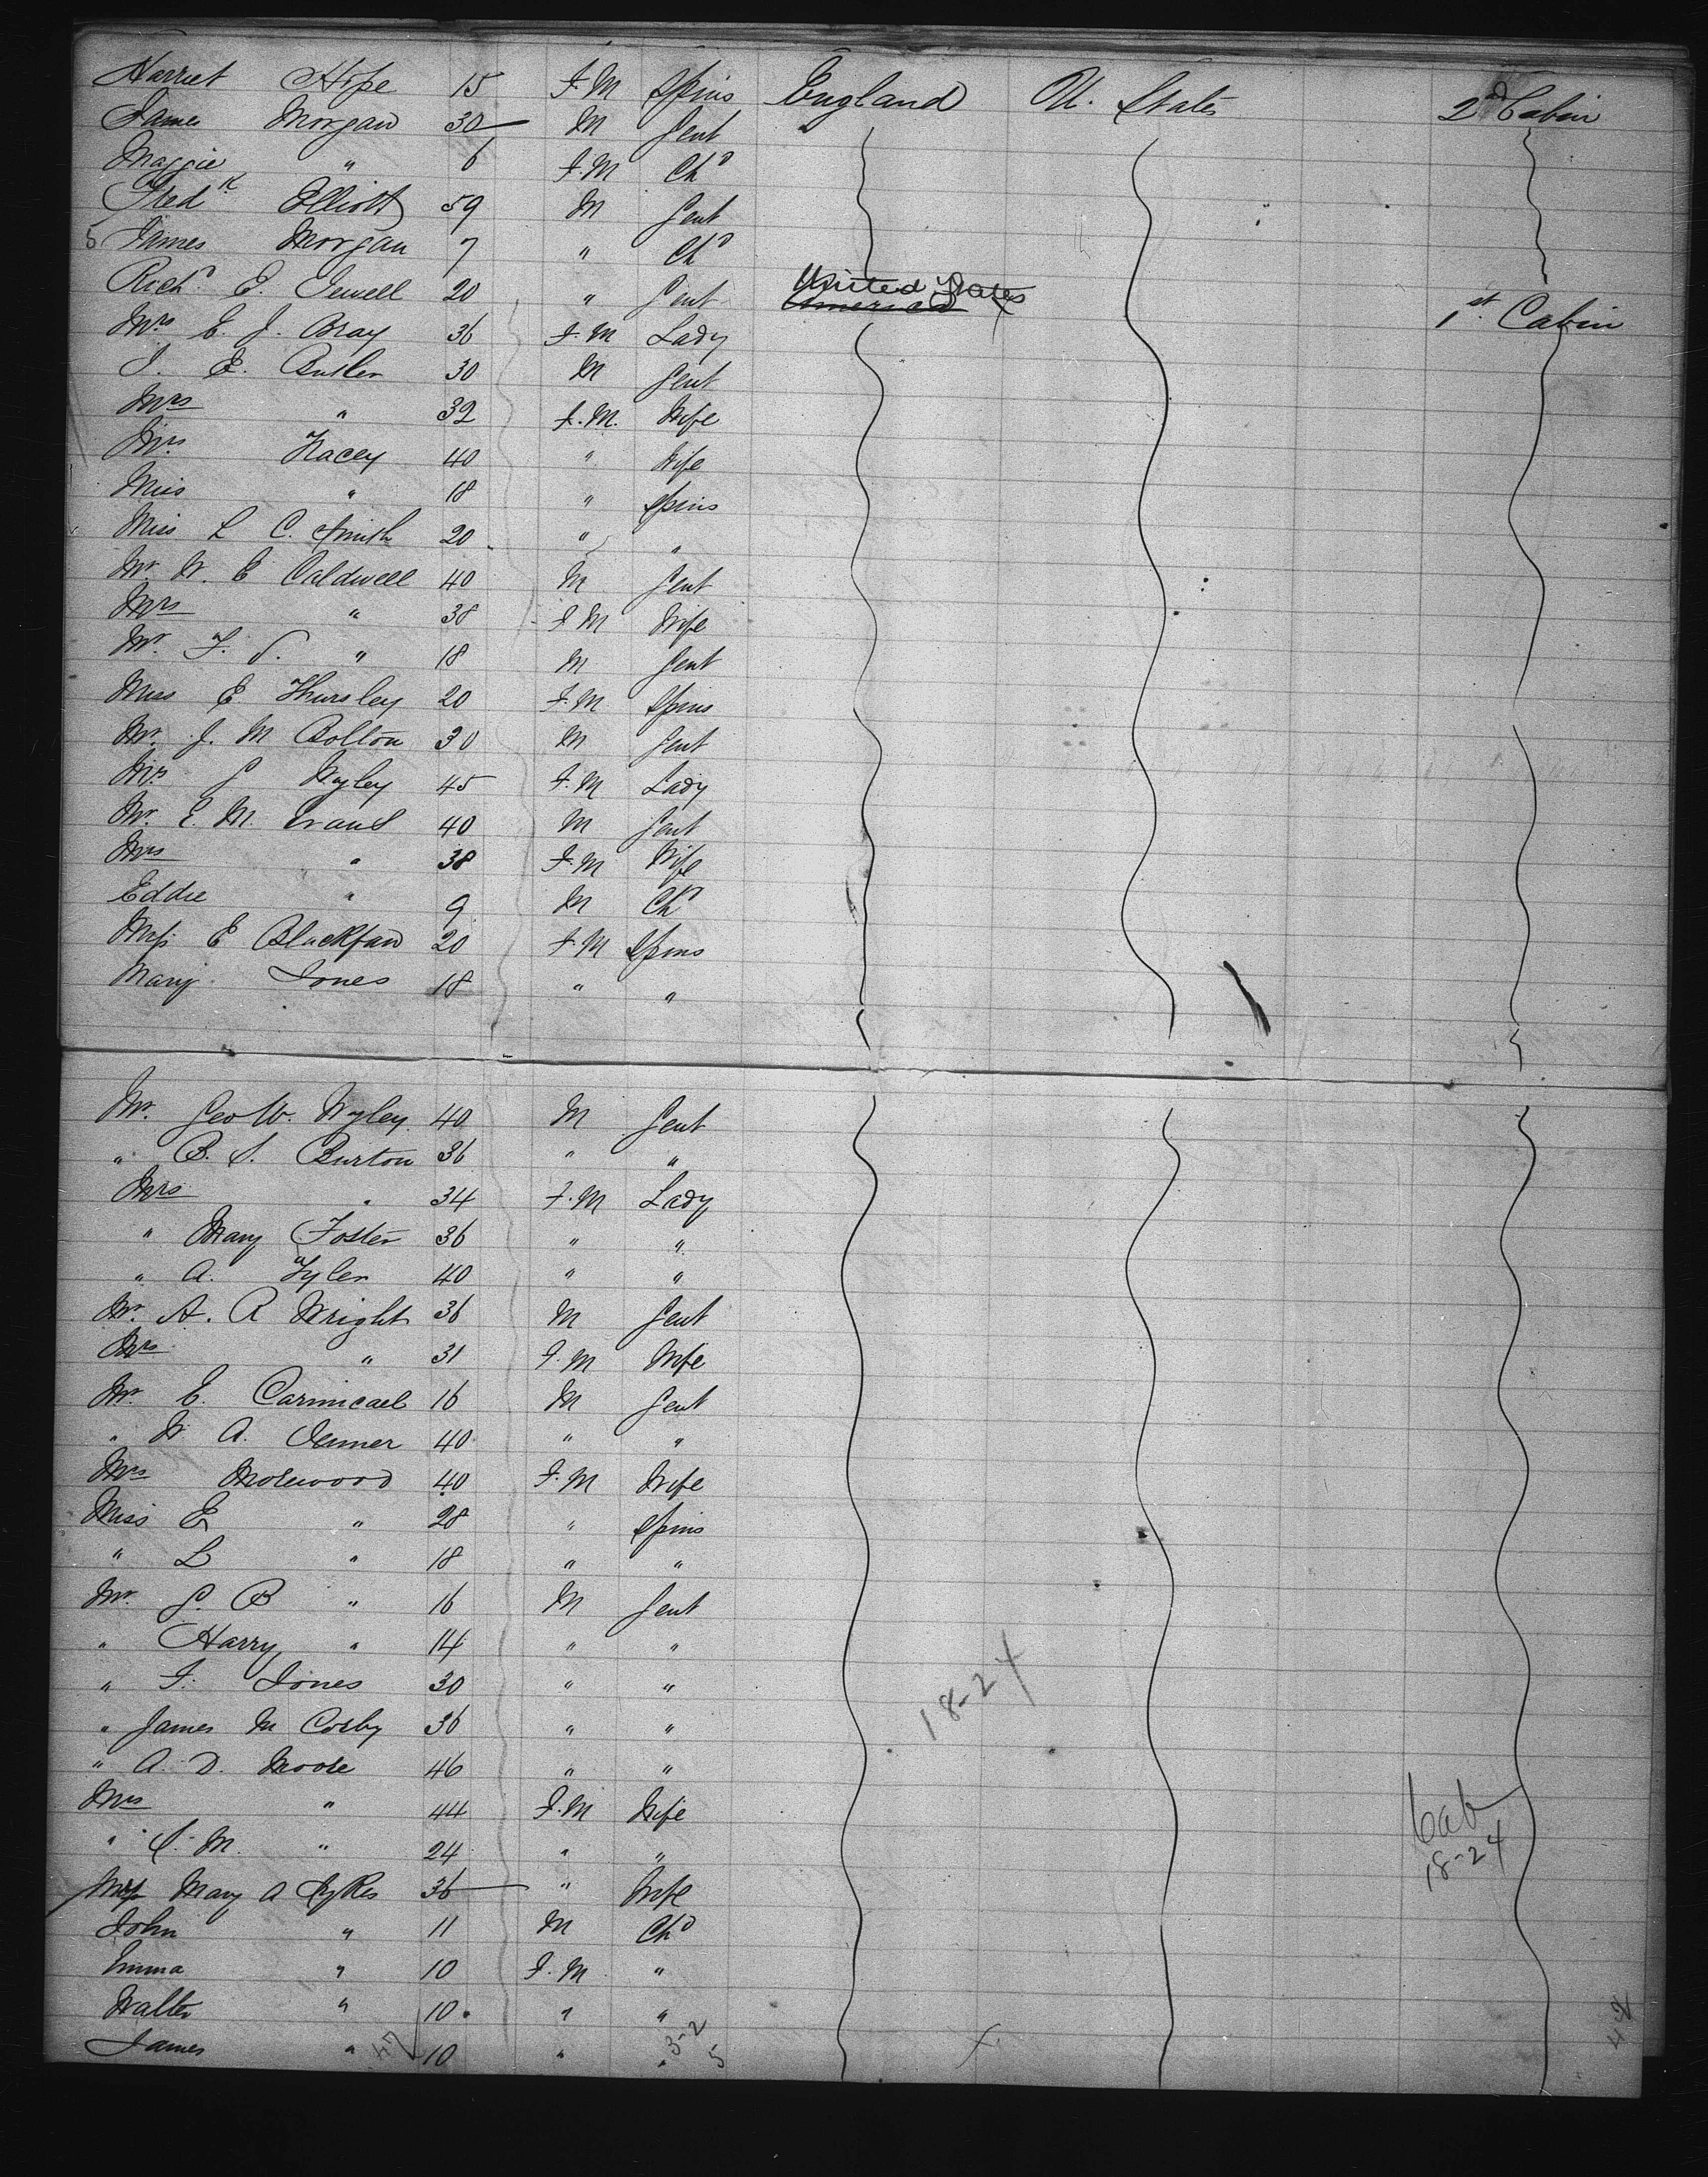 Harriet Hope 15 F.M Spins England U. States 2nd Cabin
James Morgan 30 M Gent
Maggie " 6 F.M Chd
Fredk Elliott 59 M Gent
5 James Morgan 7 " Chd
Richd E. Jewell 20 " Gent United States America 1st Cabin
Mrs E. J. Bray 36 F.M Lady
J. E. Butler 30 M Gent
Mrs " 32 F.M. Wife
Mrs 40 " Wife
Miss " 18 " Spins
Miss L C. Smith 20 " "
Mr W. E Caldwell 40 M Gent
Mrs " 38 F M Wife
Mr. F. S. " 18 M Gent
Miss E. Thursley 20 F.M Spins
Mr. J. M Bolton 30 M Gent
Mrs G Wyley 45 F.M Lady
Mr. E. M. Evans 40 M Gent
Mrs " 38 F.M Wife
Eddie " 9 M Chd
Miss E Blackfan 20 F.M Spins
Mary Jones 18 " "
Mr. Geo W. Wyley 40 M Gent
" B. S. Burton 36 " "
Mrs " 34 F.M Lady
" Mary Foster 36 " "
" A. Tyler 40 " "
Mr. A. R Wright 36 M Gent
Mrs " 31 F.M Wife
Mr. E. Carmicael 16 M Gent
" W A. Jenner 40 " "
Mrs Morewood 40 F.M Wife
Miss E " 28 " Spins
" L " 18 " "
Mr. G. B " 16 M Gent
" Harry " 14 " "
" F. Jones 30 " "
" James M Cosby 36 " " 18-24
" A. D. Moore 46 " "
Mrs " 44 F.M Wife Cab
" S. M. " 24 " " 18-24
Mary A Sykes 36 " Wife
John " 11 M Chd
Emma " 10 F.M "
Walter " 10 " "
James " 47 10 " " 3-2 5 42